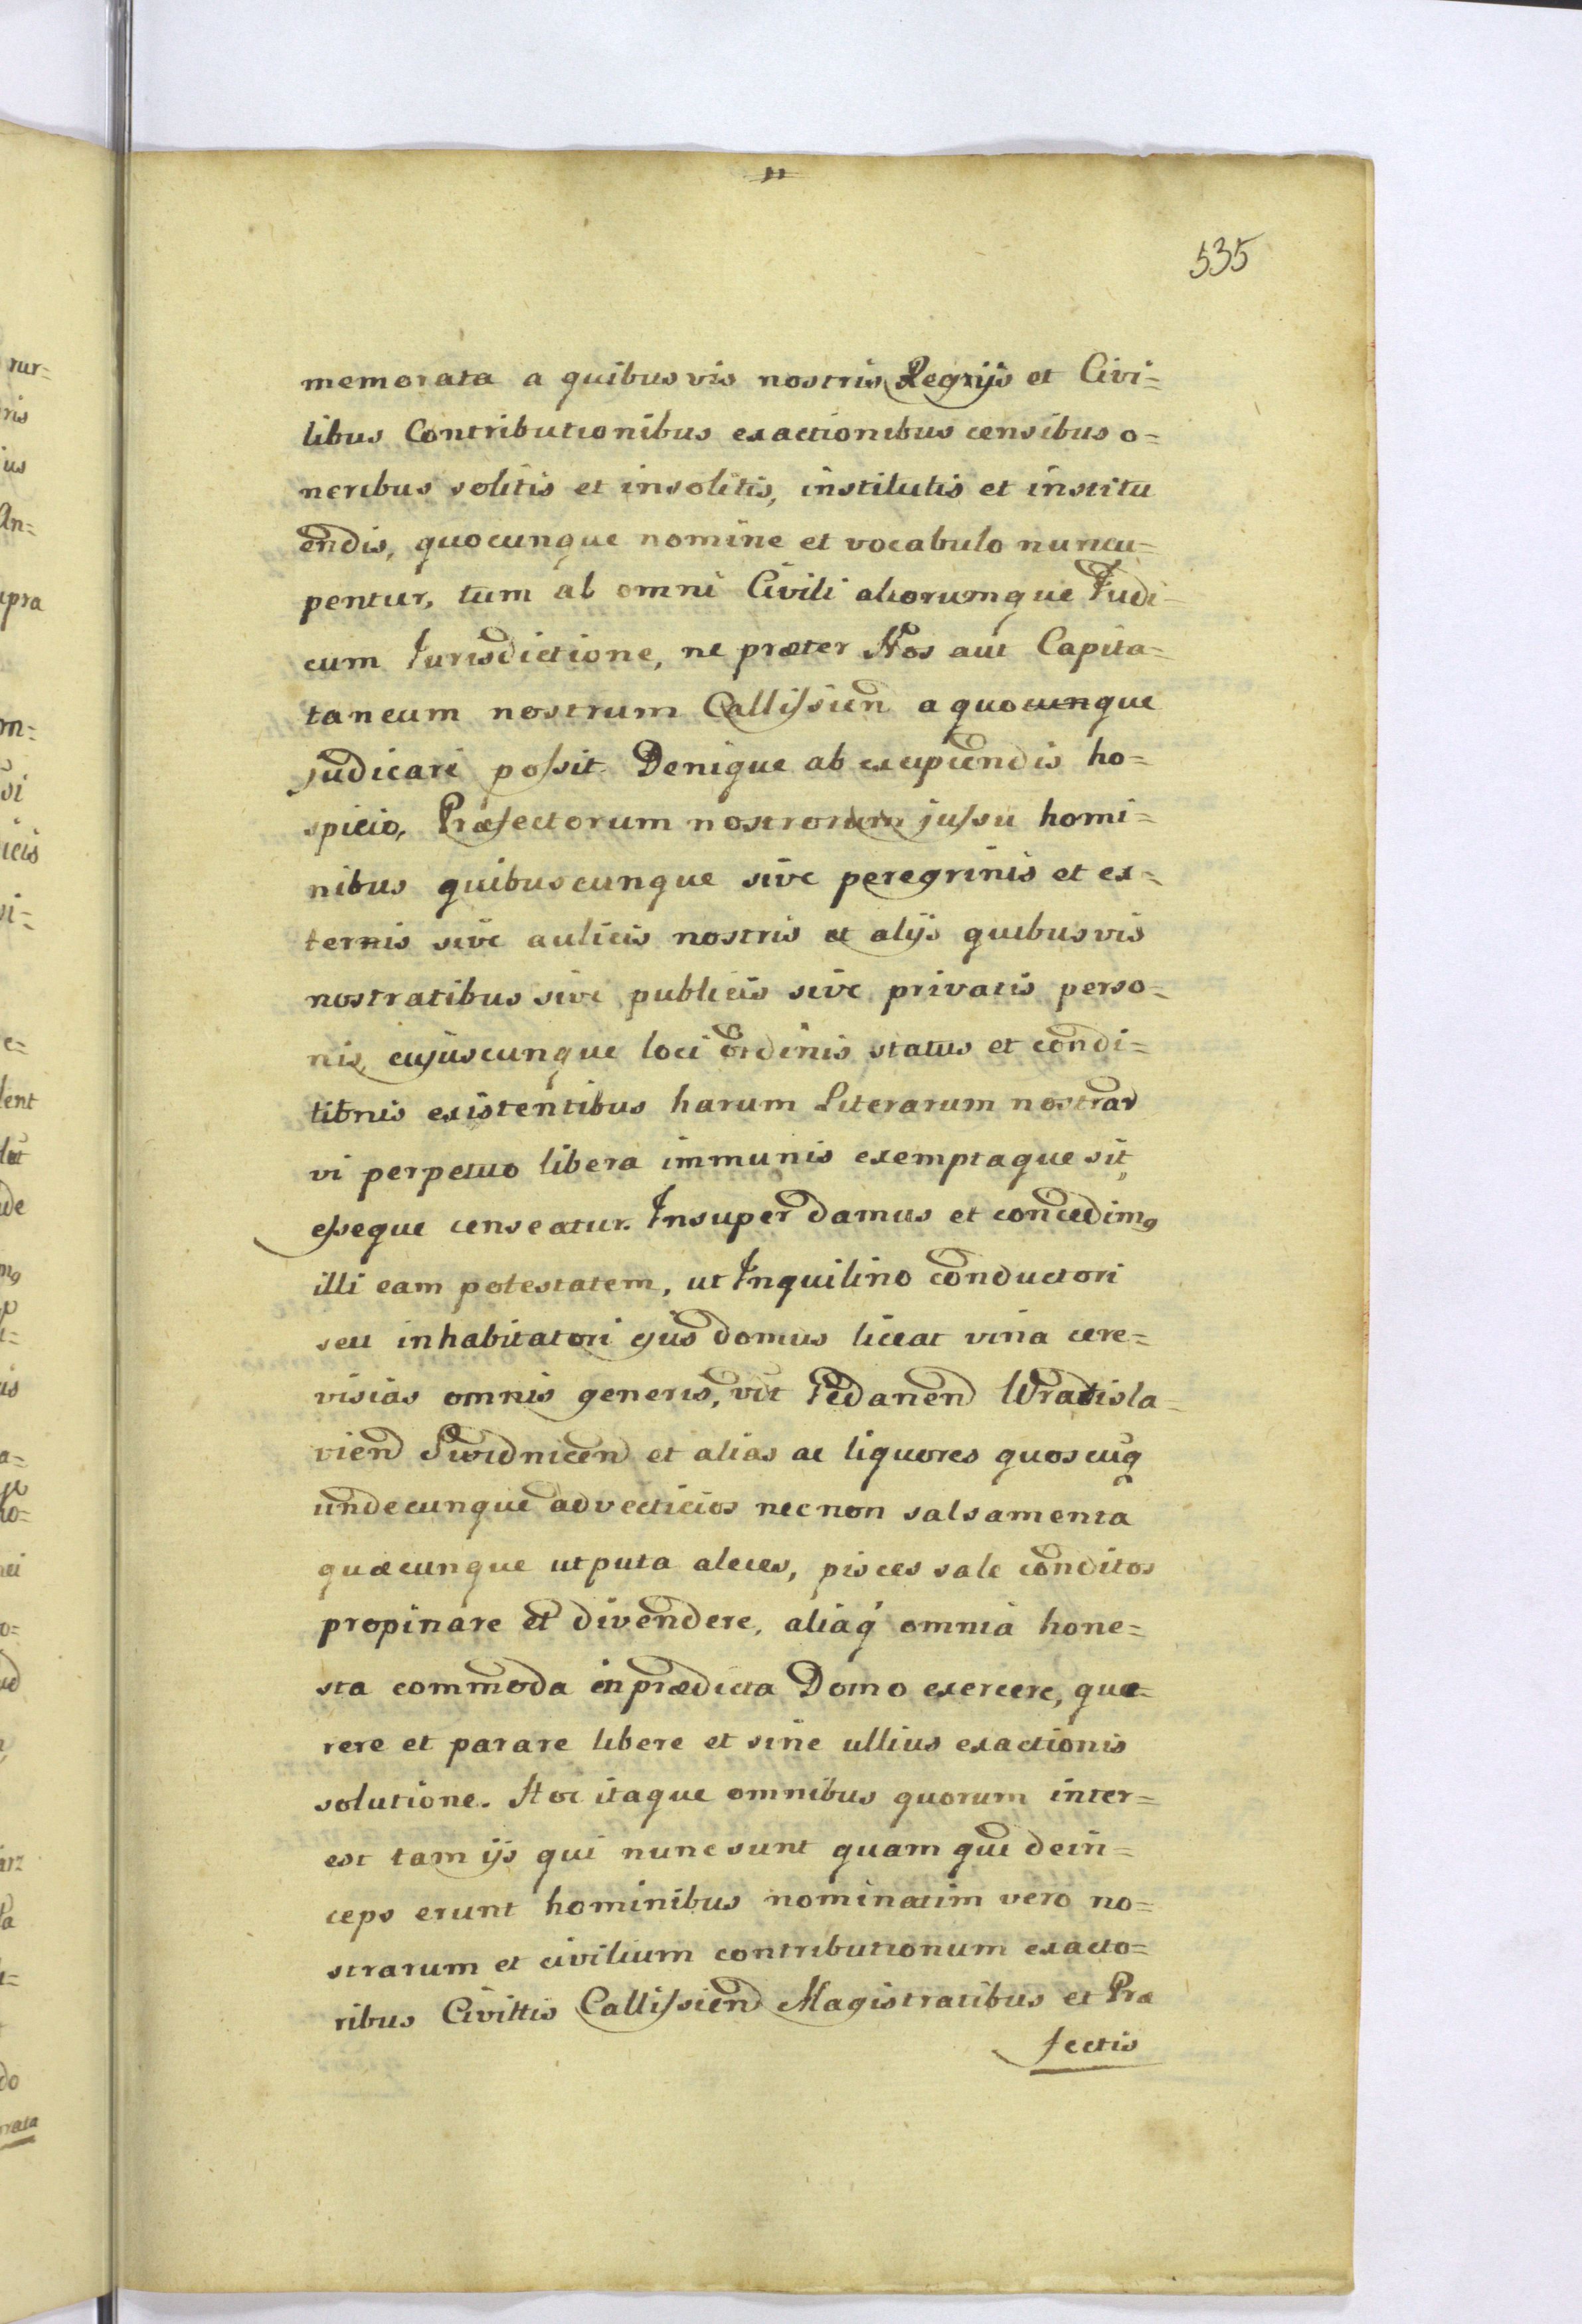 535
memorata a quibusvis nostris Regiijs et Civi=
libus Contributionibus exactionibus censibus o=
neribus solitis et insolitis, institutis et institu
endis, quocunque nomine et vocabulo nuncu=
pentur, tum ab omni Civili aliorumque Iudi-
cum Iurisdictione, ne præter Nos aut Capita=
taneum nostrum Callissien a quocunque
judicari possit. Denique ab excipiendis ho=
spicio, Præfectorum nostrorum jussu homi=
nibus quibuscunque sive peregrinis et ex=
ternis sive aulicis nostris et alijs quibusvis
nostratibus sive publicis sive privatis perso=
nis, cujuscunque loci ordinis status et condi=
tionis existentibus harum Literarum nostrar
vi perpetuo libera immunis exemptaque sit
esseque censeatur. Insuper damus et concedimꝰ
illi eam potestatem, ut Inquilino conductori
seu inhabitatori ejus domus liceat vina cere=
visias omnis generis, vit Pedanen Wratisla=
vien Swidnicen et alias ac liquores quoscuq
undecunque advecticios necnon salsamenta
quæcunque utputa aleces, pisces sale conditos
propinare et divendere, aliaq omnia hone=
sta commoda in prædicta Domo exercere, quæ=
rere et parare libere et sine ullius exactionis
solutione. Hoc itaque omnibus quorum inter=
est tam ijs qui nunc sunt quam qui dein=
ceps erunt hominibus nominatim vero no=
strarum et civilium contributionum exacto=
ribus Civittis Callissien Magistratibus et Præ
fectis
rur=
ris
ius
An=
upra
on=
si
icis
vi=
e=
lent
de
mꝰ
is
a=
ho=
ui
o=
do
rata